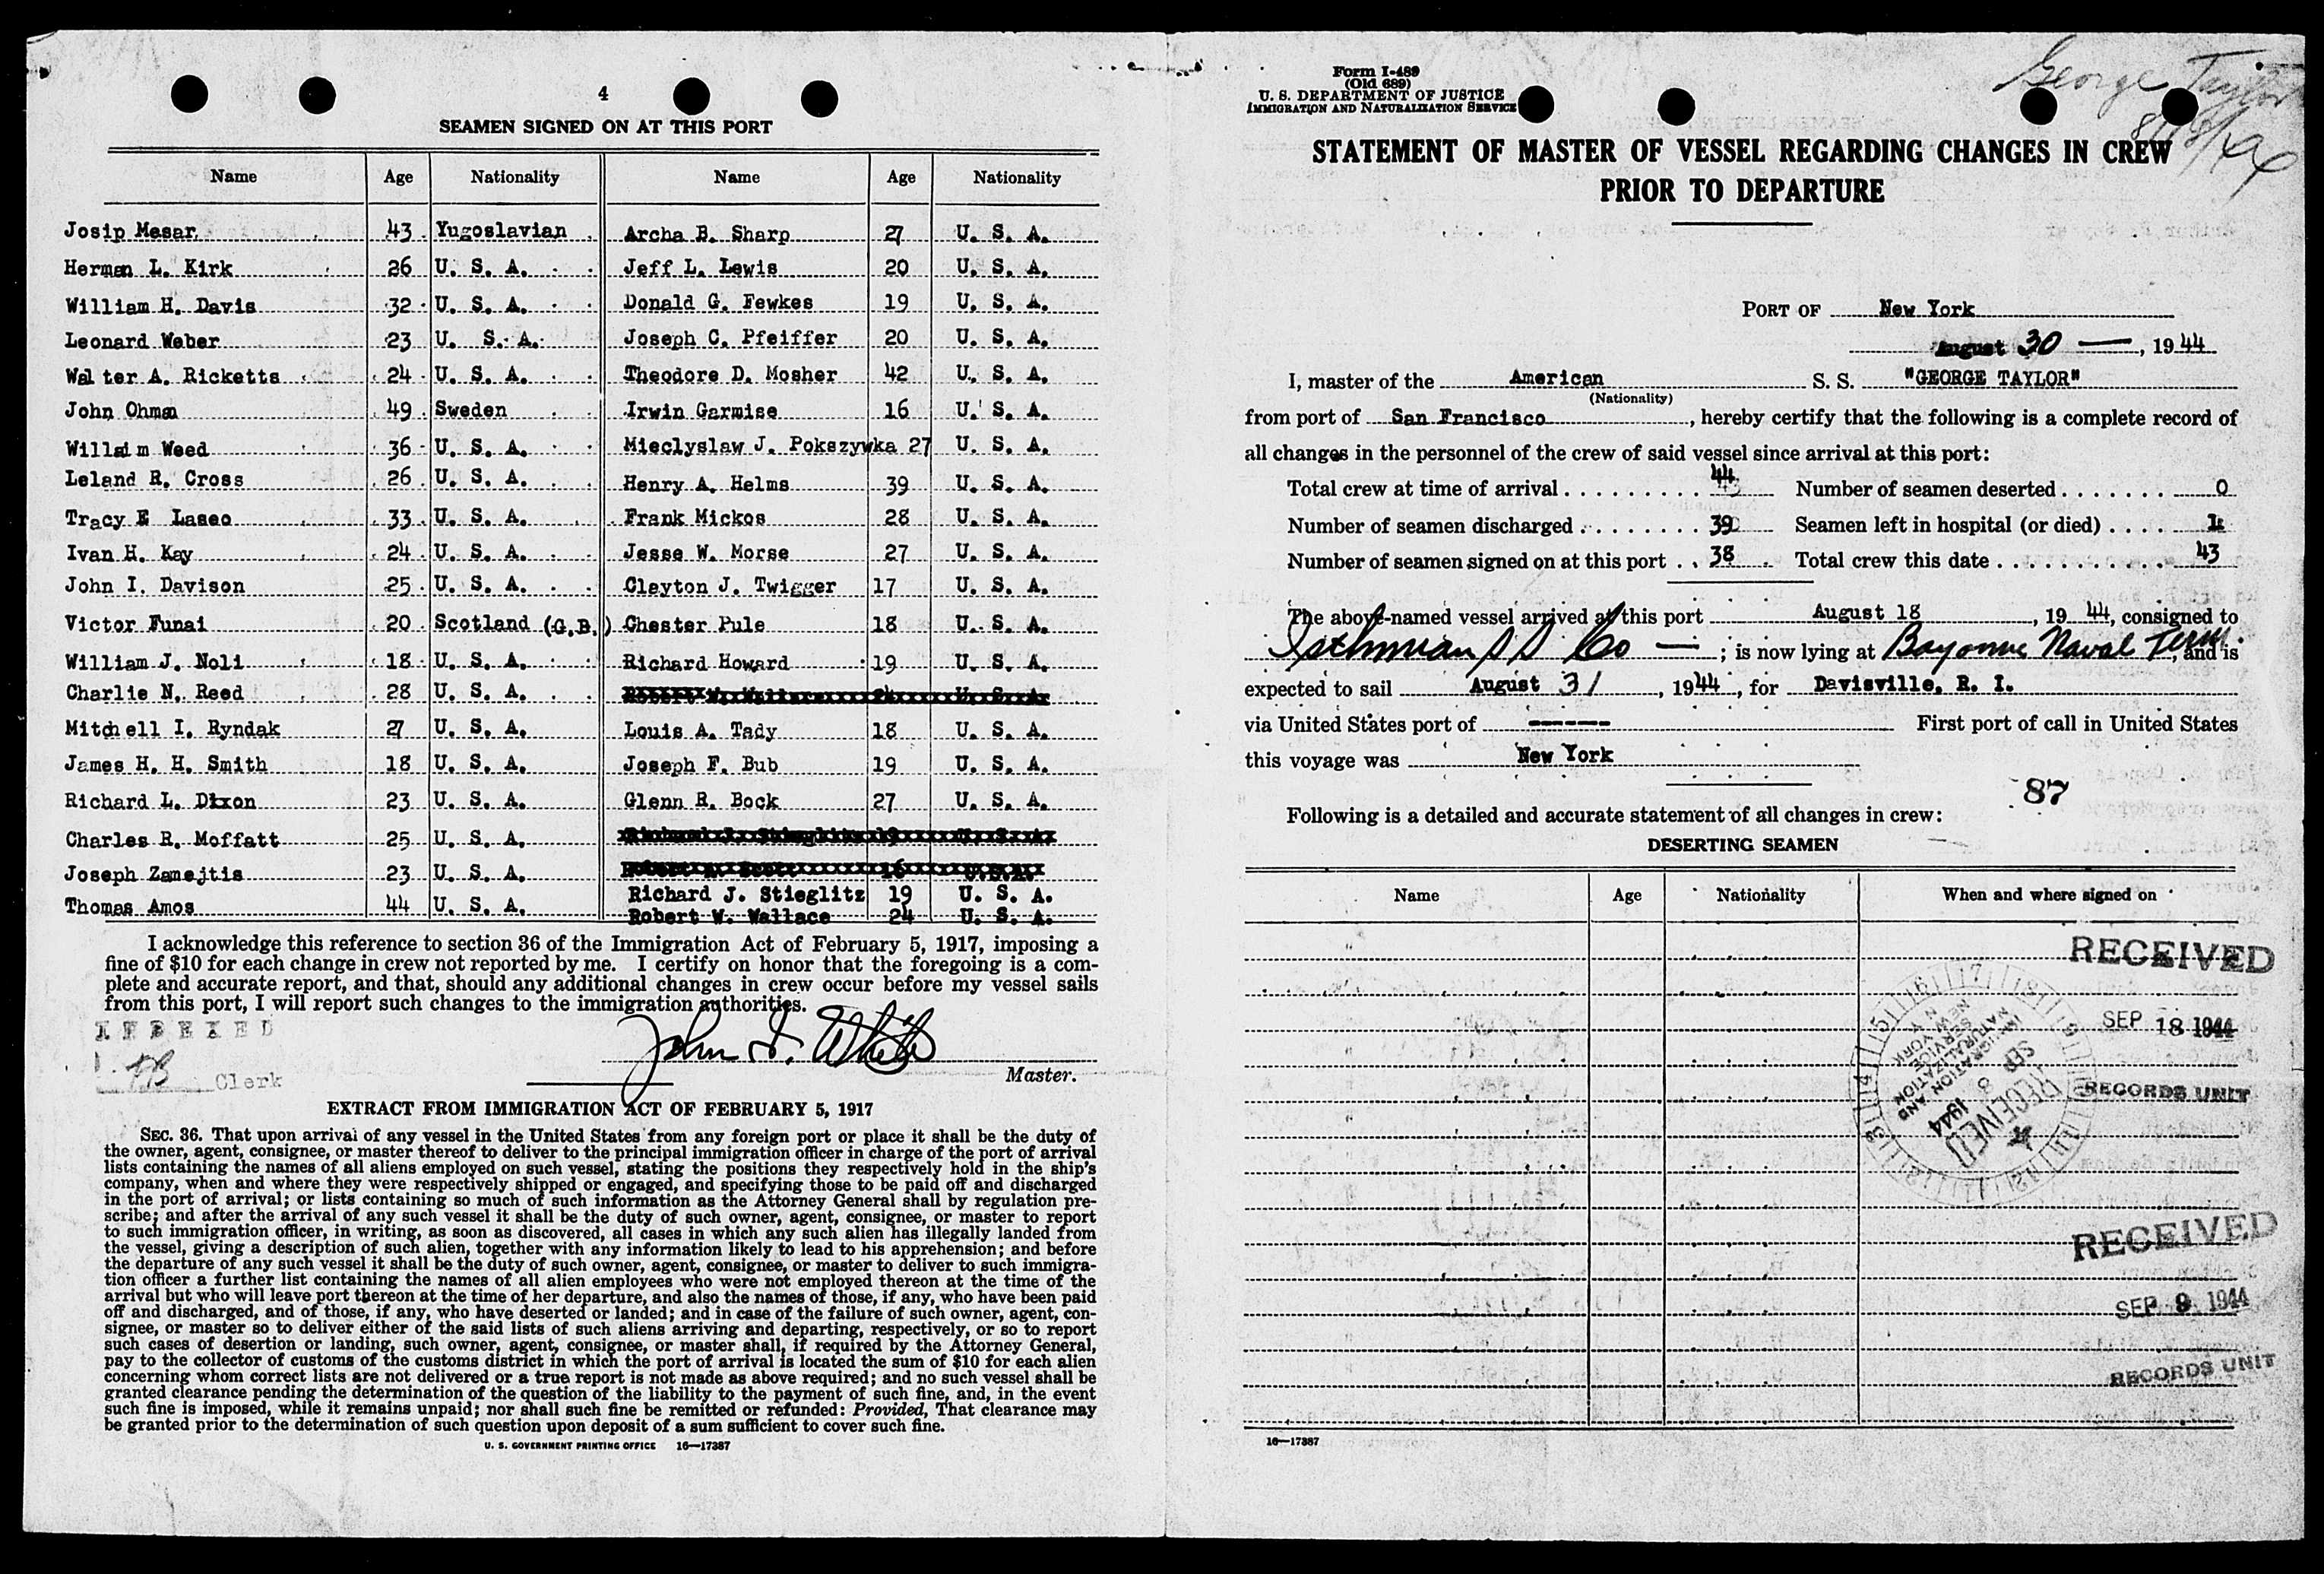 4
SEAMEN SIGNED ON AT THIS PORT
Name Age Nationality Name Age Nationality
Josip Mesar 43 Yugoslavian Archa B. Sharp 27 U. S. A.
Herman L. Kirk 26 U. S. A. Jeff L. Lewis 20 U. S. A.
William H. Davis 32 U. S. A. Donald G. Fewkes 19 U. S. A.
Leonard Weber 23 U. S. A. Joseph C. Pfeiffer 20 U. S. A.
Walter A. Ricketts 24 U. S. A. Theodore D. Mosher 42 U. S. A.
John Ohman 49 Sweden Irwin Garmise 16 U. S. A.
Willaim Weed 36 U. S. A. Mieclyslaw J. Pokszywka 27 U. S. A.
Leland R. Cross 26 U. S. A. Henry A. Helms 39 U. S. A.
Tracy E Laseo 33 U. S. A. Frank Mickos 28 U. S. A.
Ivan H. Kay 24 U. S. A. Jesse W. Morse 27 U. S. A.
John I. Davison 25 U. S. A. Clayton J. Twigger 17 U. S. A.
Victor Funai 20 Scotland (G.B.) Chester Pule 18 U. S. A.
William J. Noli 18 U. S. A. Richard Howard 19 U. S. A.
Charlie N. Reed 28 U. S. A.
Mitchell I. Ryndak 27 U. S. A. Louis A. Tady 18 U. S. A.
James H. H. Smith 18 U. S. A. Joseph F. Bub 19 U. S. A.
Richard L. Dixon 23 U. S. A. Glenn R. Bock 27 U. S. A.
Charles R. Moffatt 25 U. S. A.
Joseph Zamejtis 23 U. S. A.
Richard J. Stieglitz 19 U. S. A.
Thomas Amos 44 U. S. A. Robert W. Wallace 24 U. S. A.
I acknowledge this reference to section 36 of the Immigration Act of February 5, 1917, imposing a
fine of $10 for each change in crew not reported by me. I certify on honor that the foregoing is a com-
plete and accurate report, and that, should any additional changes in crew occur before my vessel sails
from this port, I will report such changes to the immigration authorities.
INDEXED
Clerk
John I. White
Master.
EXTRACT FROM IMMIGRATION ACT OF FEBRUARY 5, 1917
SEC. 36. That upon arrival of any vessel in the United States from any foreign port or place it shall be the duty of
the owner, agent, consignee, or master thereof to deliver to the principal immigration officer in charge of the port of arrival
lists containing the names of all aliens employed on such vessel, stating the positions they respectively hold in the ship's
company, when and where they were respectively shipped or engaged, and specifying those to be paid off and discharged
in the port of arrival; or lists containing so much of such information as the Attorney General shall by regulation pre-
scribe; and after the arrival of any such vessel it shall be the duty of such owner, agent, consignee, or master to report
to such immigration officer, in writing, as soon as discovered, all cases in which any such alien has illegally landed from
the vessel, giving a description of such alien, together with any information likely to lead to his apprehension; and before
the departure of any such vessel it shall be the duty of such owner, agent, consignee, or master to deliver to such immigra-
tion officer a further list containing the names of all alien employees who were not employed thereon at the time of the
arrival but who will leave port thereon at the time of her departure, and also the names of those, if any, who have been paid
off and discharged, and of those, if any, who have deserted or landed; and in case of the failure of such owner, agent, con-
signee, or master so to deliver either of the said lists of such aliens arriving and departing, respectively, or so to report
such cases of desertion or landing, such owner, agent, consignee, or master shall, if required by the Attorney General,
pay to the collector of customs of the customs district in which the port of arrival is located the sum of $10 for each alien
concerning whom correct lists are not delivered or a true report is not made as above required; and no such vessel shall be
granted clearance pending the determination of the question of the liability to the payment of such fine, and, in the event
such fine is imposed, while it remains unpaid; nor shall such fine be remitted or refunded: Provided, That clearance may
be granted prior to the determination of such question upon deposit of a sum sufficient to cover such fine.
U. S. GOVERNMENT PRINTING OFFICE 16—17387
Form I-489
(Old 689)
U. S. DEPARTMENT OF JUSTICE
IMMIGRATION AND NATURALIZATION SERVICE
George Taylor
8/18/44
STATEMENT OF MASTER OF VESSEL REGARDING CHANGES IN CREW
PRIOR TO DEPARTURE
PORT OF New York
August 30 —, 1944
I, master of the American S. S. "GEORGE TAYLOR"
(Nationality)
from port of San Francisco, hereby certify that the following is a complete record of
all changes in the personnel of the crew of said vessel since arrival at this port:
Total crew at time of arrival 44 Number of seamen deserted 0
Number of seamen discharged 39 Seamen left in hospital (or died) 1
Number of seamen signed on at this port 38 Total crew this date 43
The above-named vessel arrived at this port August 18, 1944, consigned to
Isthmian S S Co —; is now lying at Bayonne Naval Term., and is
expected to sail August 31, 1944, for Davisville, R. I.
via United States port of ------ First port of call in United States
this voyage was New York
87
Following is a detailed and accurate statement of all changes in crew:
DESERTING SEAMEN
Name Age Nationality When and where signed on
RECEIVED
SEP 18 1944
RECORDS UNIT
IMMIGRATION AND
NATURALIZATION
SERVICE
NEW YORK
SEP 8 1944
RECEIVED
RECEIVED
SEP 9 1944
RECORDS UNIT
16—17387